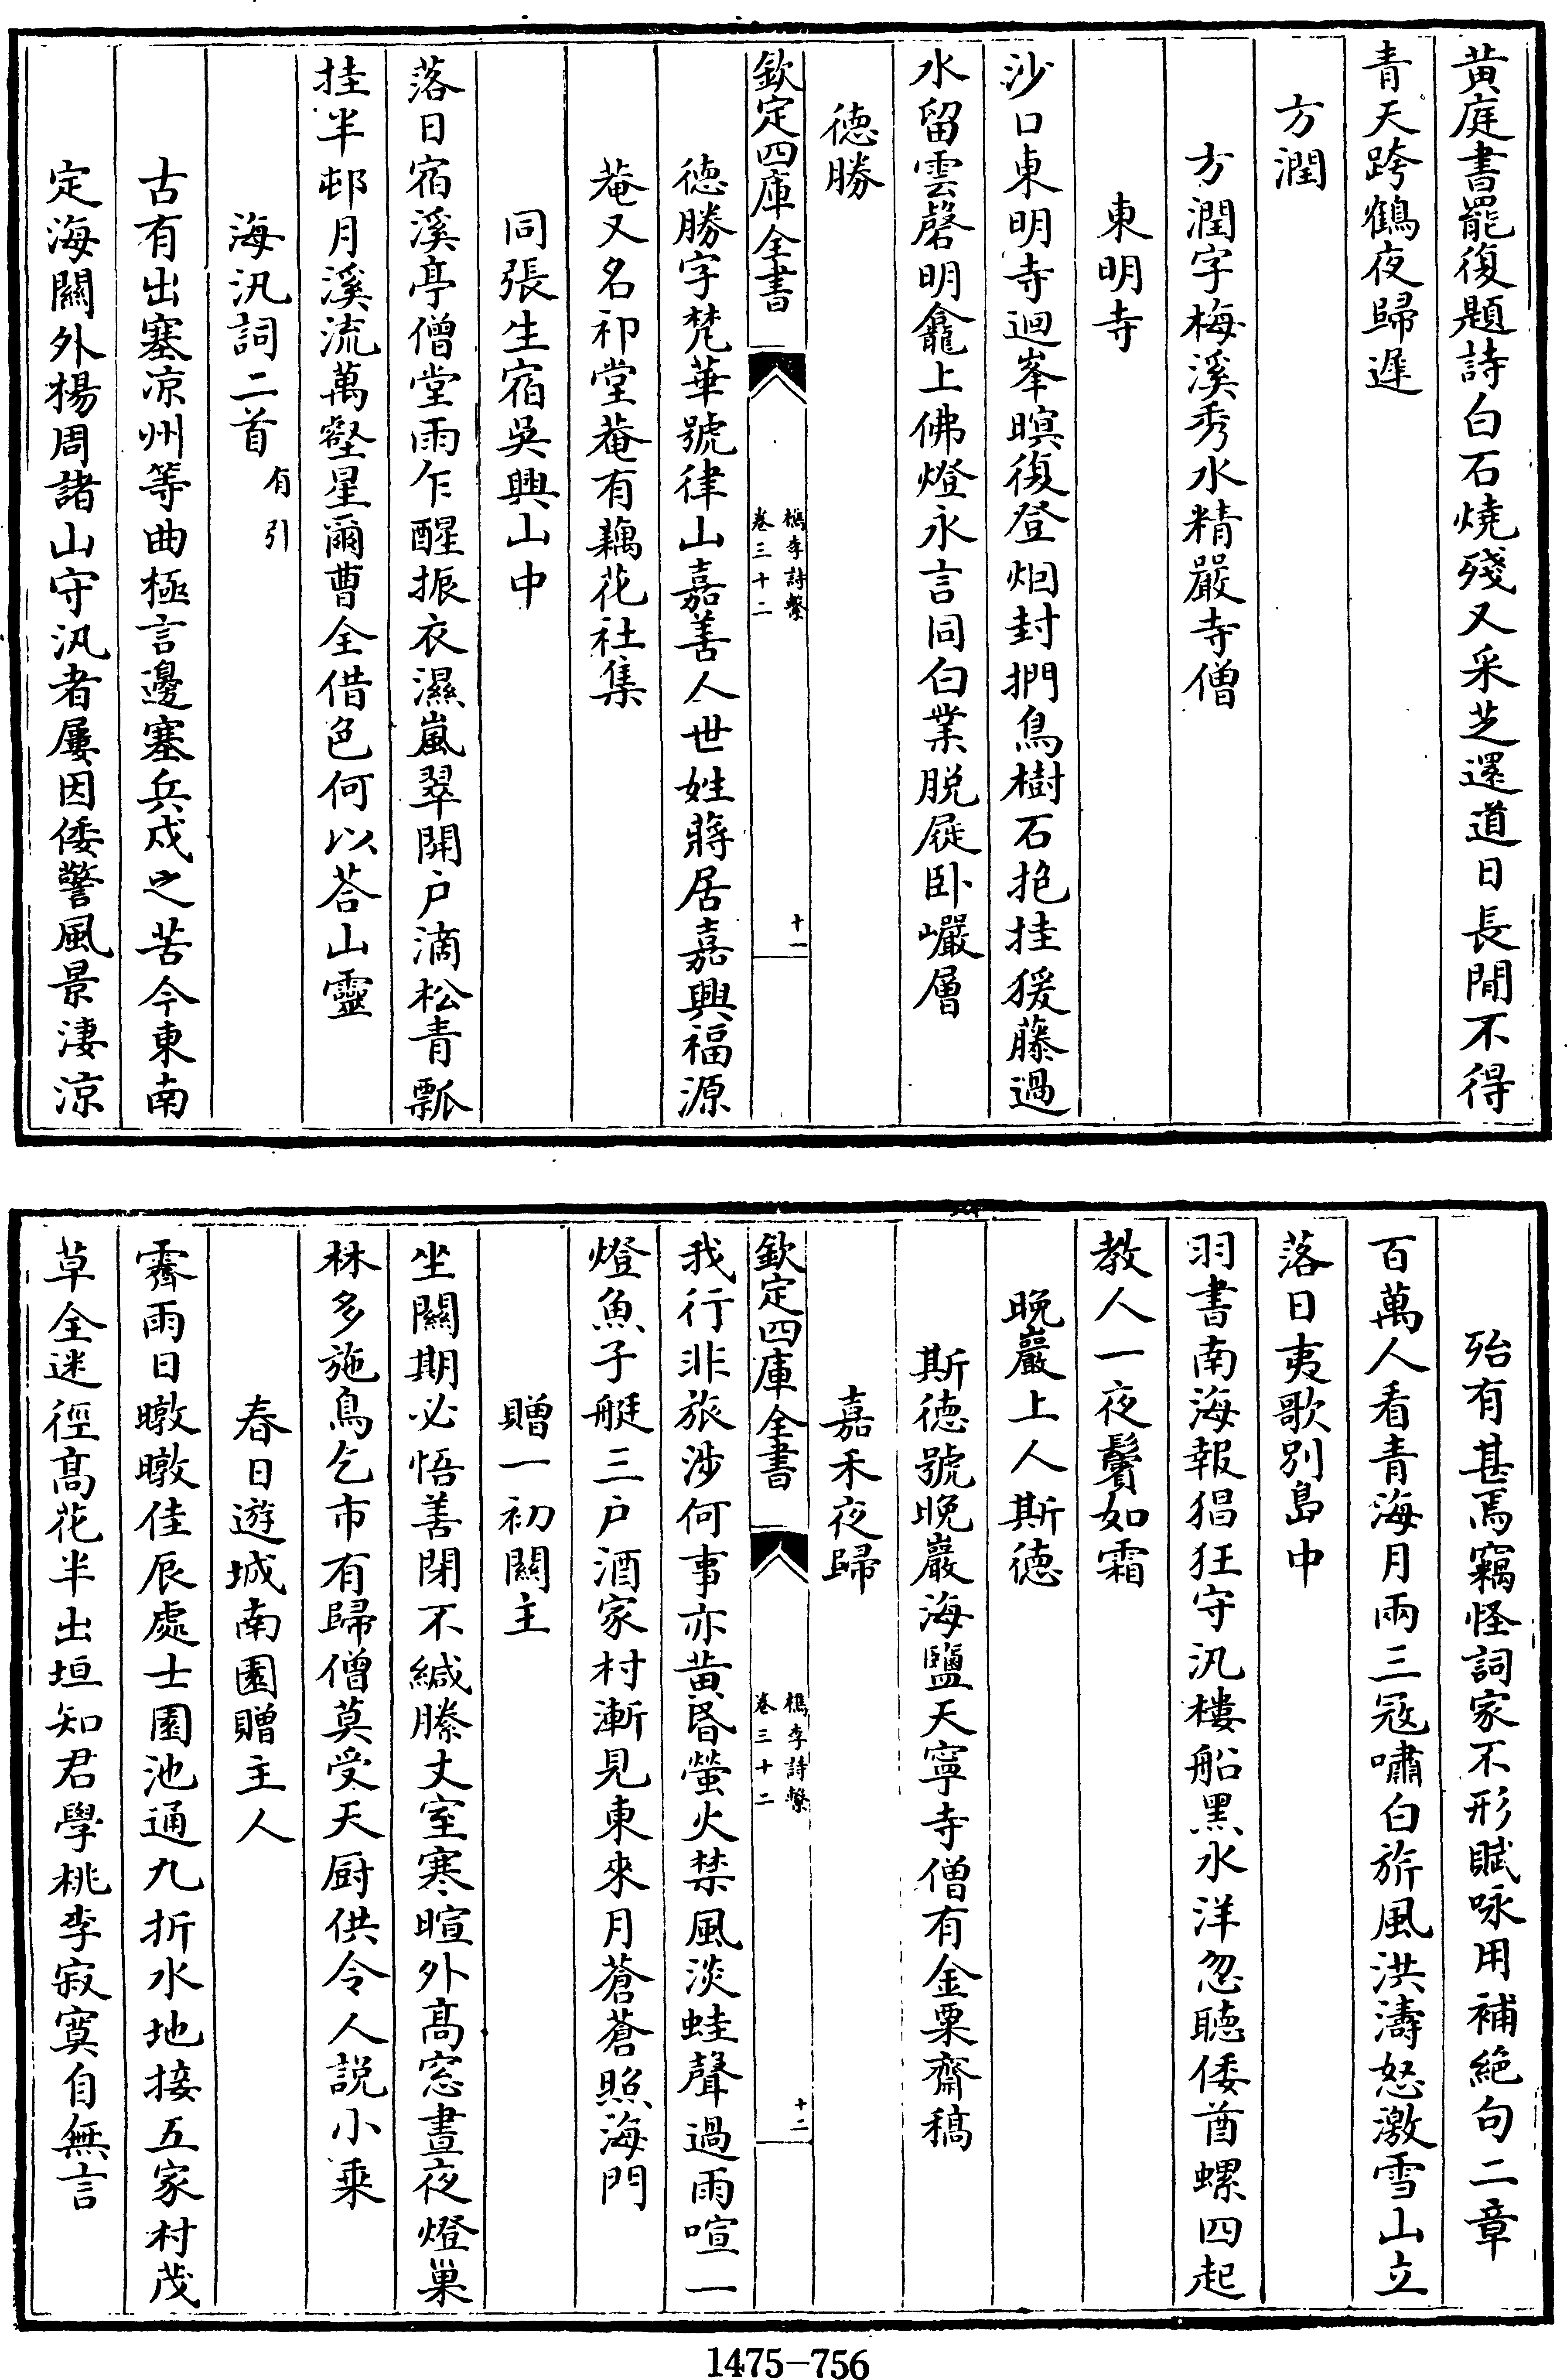 黄庭書罷復題詩白石燒殘又采芝還道日長閒不得
青天跨鶴夜歸遲
方潤
方潤字梅溪秀水精嚴寺僧
東明寺
沙口東明寺迴峯暝復登烟封捫鳥樹石抱挂猨藤過
水留雲磬明龕上佛燈永言同白業脱屣卧巗層
德勝
欽定四庫全書
檇李詩繫
卷三十二
十一
德勝字梵華號律山嘉善人世姓蔣居嘉興福源
菴又名祁堂菴有藕花社集
同張生宿吳興山中
落日宿溪亭僧堂雨乍醒振衣濕嵐翠開户滴松青瓢
挂半邨月溪流萬壑星爾曹全借色何以荅山靈
海汛詞二首有引
古有出塞凉州等曲極言邊塞兵戍之苦今東南
定海關外楊周諸山守汛者屢因倭警風景淒涼
殆有甚焉竊怪詞家不形賦咏用補絶句二章
百萬人看青海月兩三冦嘯白旂風洪濤怒激雪山立
落日夷歌别島中
羽書南海報猖狂守汛樓船黑水洋忽聽倭酋螺四起
教人一夜鬢如霜
晚巖上人斯德
斯德號晚巖海鹽天寧寺僧有金粟齋稿
嘉禾夜歸
欽定四庫全書
檇李詩繫
卷三十二
十二
我行非旅涉何事亦黄昏螢火禁風淡蛙聲過雨喧一
燈魚子艇三户酒家村漸見東來月蒼蒼照海門
贈一初關主
坐關期必悟善閉不緘縢丈室寒暄外高窓晝夜燈巢
林多施鳥乞市有歸僧莫受天厨供令人説小乘
春日遊城南園贈主人
霽雨日暾暾佳辰處士園池通九折水地接五家村茂
草全迷徑高花半出垣知君學桃李寂寞自無言
1475-756